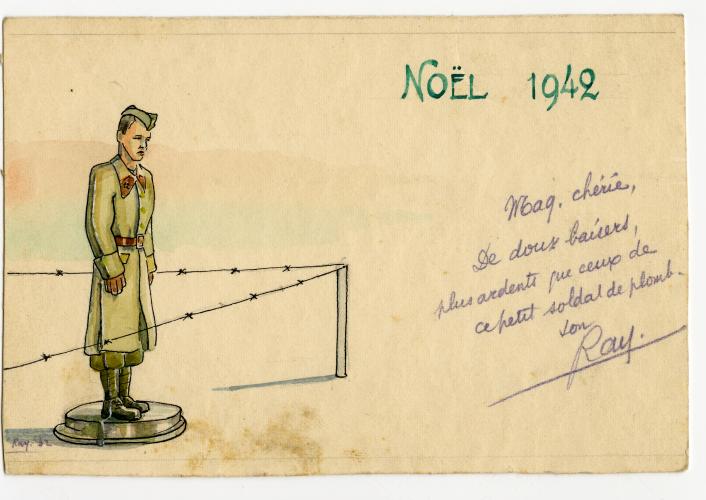 NOËL 1942
Mag. chérie,
De doux baisers,
plus ardents que ceux de
ce petit soldat de plomb.
ton
Ray.
Ray. 42